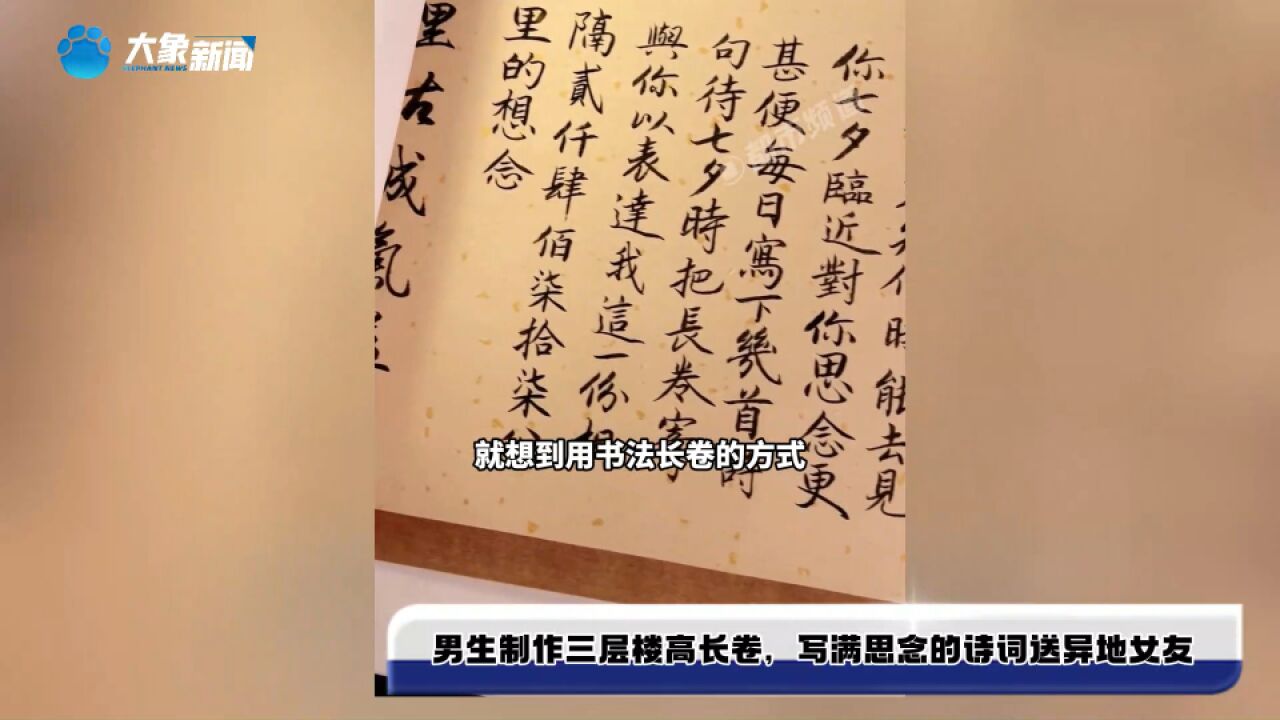 大象新闻
ELEPHANT NEWS
能去見
你七夕臨近對你思念更
甚便每日寫下幾首詩
句待七夕時把長卷寄
與你以表達我這一份相
隔貳仟肆佰柒拾柒公
里的想念
里古成氣
都市频道
就想到用书法长卷的方式
男生制作三层楼高长卷，写满思念的诗词送异地女友